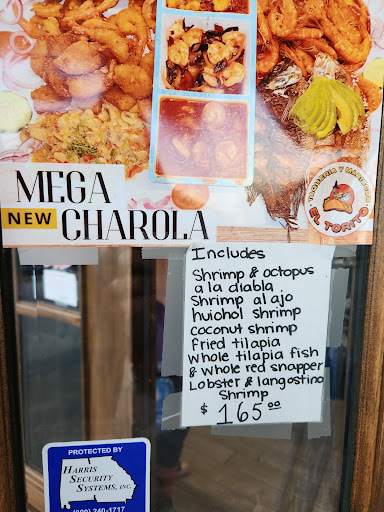 MEGA
NEW CHAROLA
TAQUERIA Y MARISCOS
EL TORITO
Includes
Shrimp & octopus
a la diabla
Shrimp al ajo
huichol shrimp
coconut shrimp
fried tilapia
whole tilapia fish
& whole red snapper
Lobster & langostino
Shrimp
$ 165.00
PROTECTED BY
HARRIS
SECURITY
SYSTEMS, INC.
240-1717